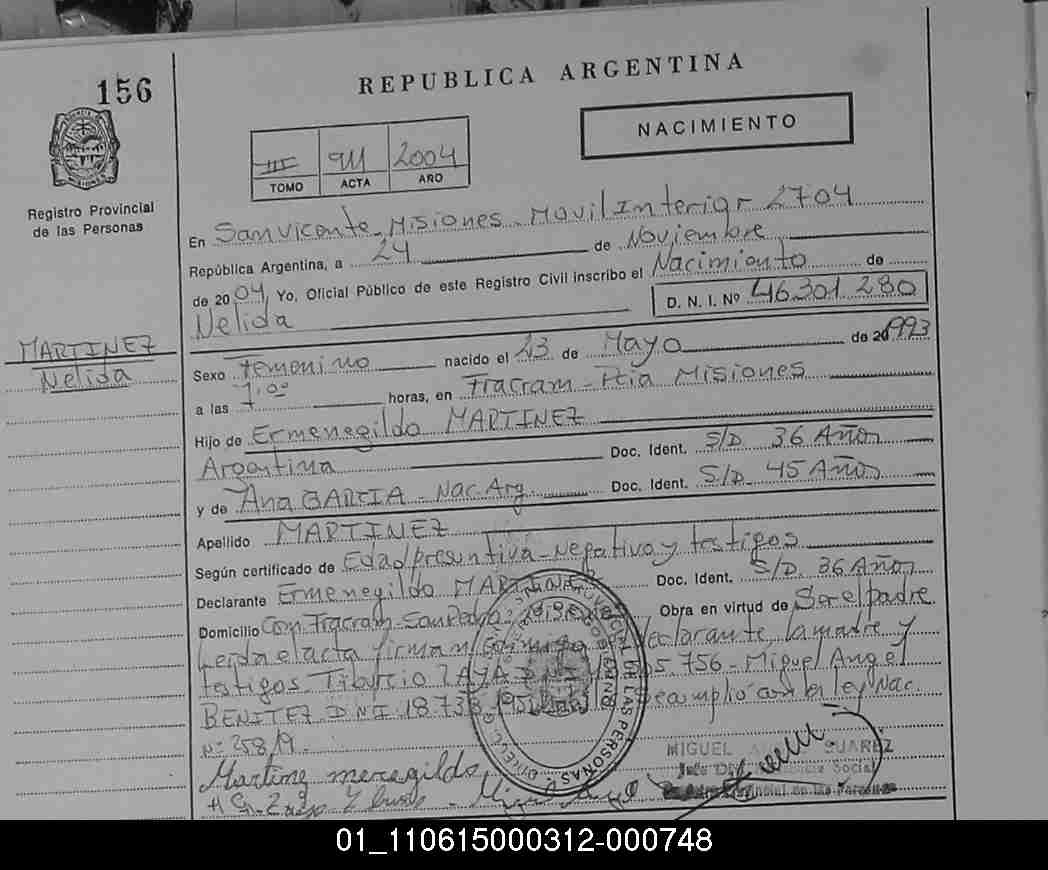 156
REPUBLICA ARGENTINA
NACIMIENTO
III 911 2004
TOMO ACTA AÑO
Registro Provincial
de las Personas
MISIONES
En San Vicente - Misiones - Movil Interior 2704
República Argentina, a 24 de Noviembre
de 2004, Yo, Oficial Público de este Registro Civil inscribo el Nacimiento de
Nelida D. N. I. Nº 46.301.280
MARTINEZ
Nelida
Sexo Femenino nacido el 23 de Mayo de 1993
a las 7:00 horas, en Fracram - Pcia Misiones
Hijo de Ermenegildo MARTINEZ
Argentina Doc. Ident. S/D 36 Años
y de Ana GARCIA - Nac. Arg. Doc. Ident. S/D 45 Años
Apellido MARTINEZ
Según certificado de Edad presuntiva - Negativo y testigos
Declarante Ermenegildo MARTINEZ Doc. Ident. S/D. 36 Años
Domicilio Com. Fracram - San Pedro Obra en virtud de Ser el padre
Leida el acta firman declarante, la madre y
testigos. Tiburcio ZAYA DNI 756 - Miguel Angel
BENITEZ D N I 18.738. Se cumplió con la ley Nac.
Nº 25819.
Martine meregildo
MIGUEL SUAREZ
Social
01_110615000312-000748